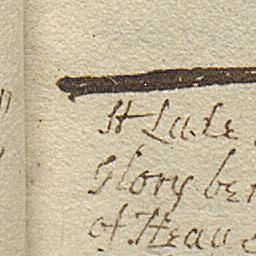 St Luke
Glory be
of Heav